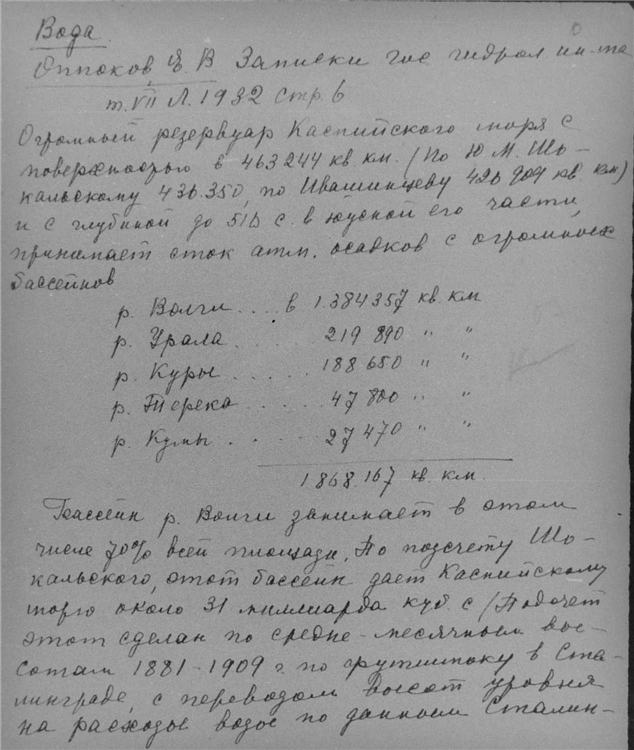 Вода
Оппоков, Е. В Записки гос гидрол. ин-та
т. VII Л. 1932 стр. 6
Огромный резервуар Каспийского моря с
поверхностью в 463244 кв км. (По Ю. М. Шо-
кальскому 436.350, по Ивашинцеву 426 909 кв. км)
и с глубиной до 516 с. в южной его части,
принимает сток атм. осадков с огромных
бассейнов
р. Волги .... в 1.384357 кв. км
р. Урала ..... 219 890 " "
р. Куры ..... 188 650 " "
р. Терека ..... 47 800 " "
р. Кумы ..... 27 470 " "
1 868.167 кв. км.
Бассейн р. Волги занимает в этом
числе 70% всей площади. По подсчету Шо-
кальского, этот бассейн дает Каспийскому
морю около 31 миллиарда куб. с (Подсчет
этот сделан по средне-месячным вы-
сотам 1881-1909 г. по футштоку в Ста-
линграде, с переводом высот уровня
на расходы воды по данным Сталин-